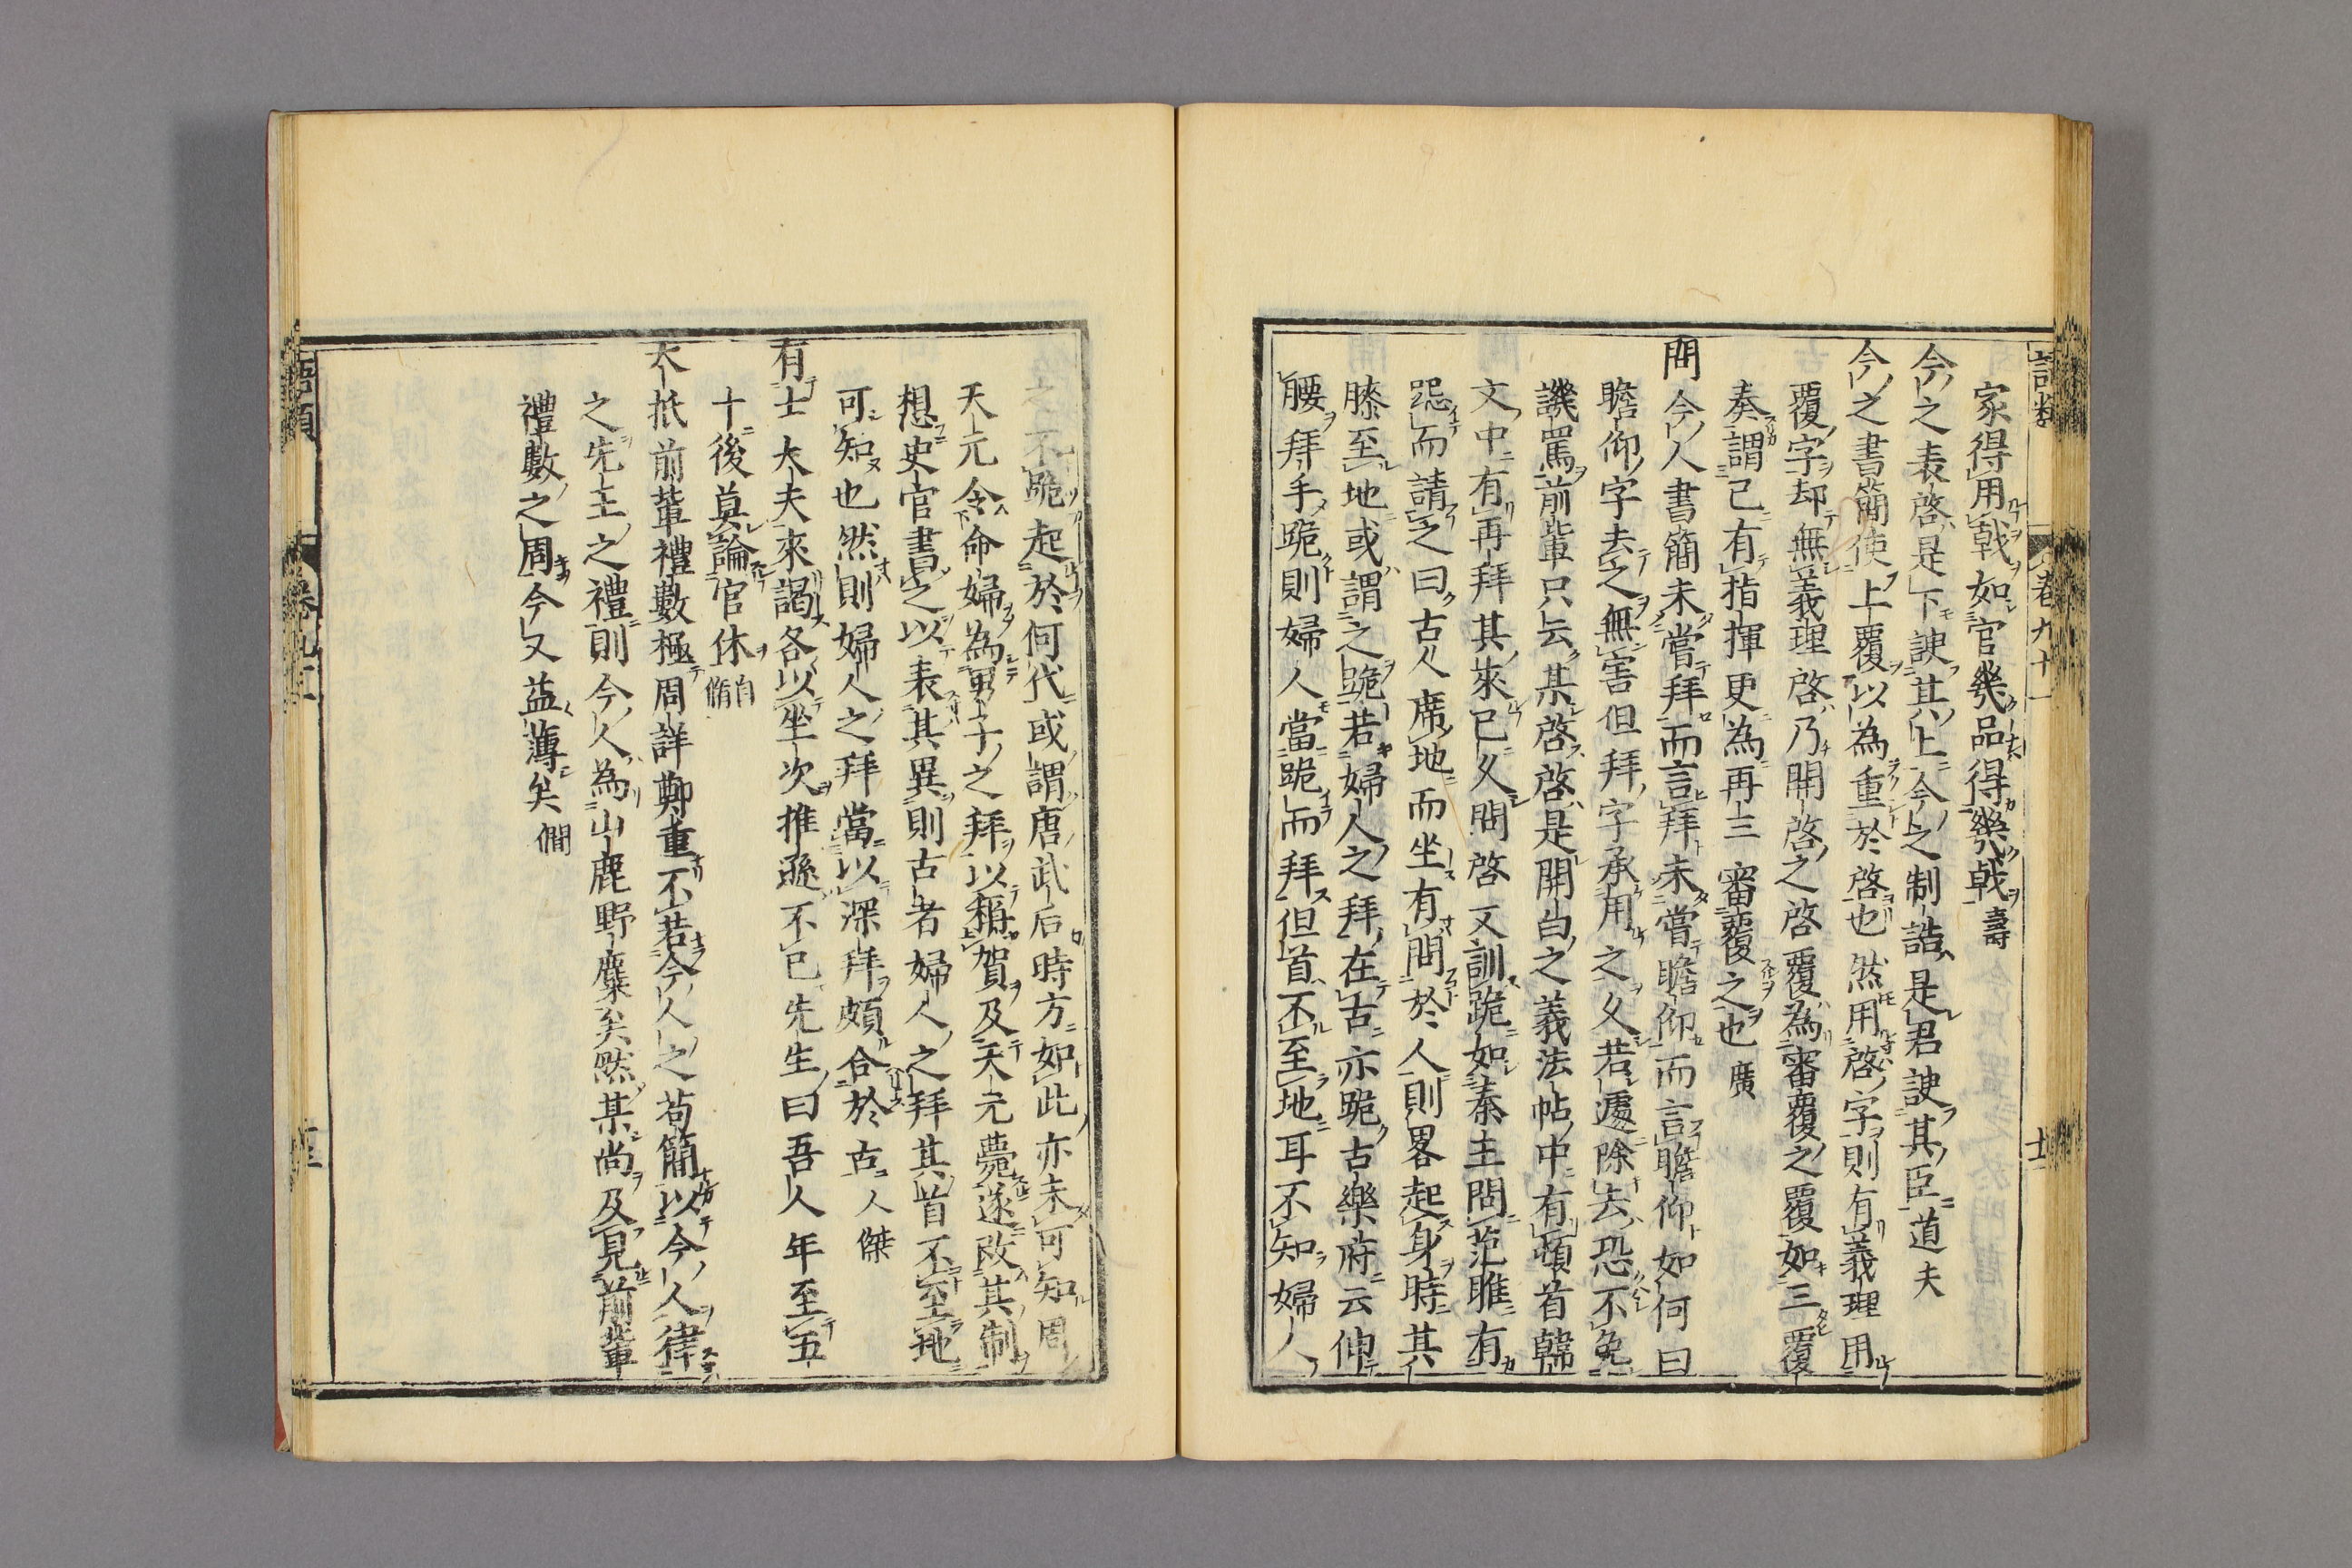 語類 卷九十一 十二
家得用戟如官幾品得幾戟壽
今之表啓是下諛其上今之制誥是君諛其臣道夫
今之書簡使上覆以為重於啓也然用啓字則有義理用
覆字却無義理啓乃開啓之啓覆為審覆之覆如三覆
奏謂已有指揮更為再三審覆之也廣
問今人書簡未嘗拜而言拜未嘗瞻仰而言瞻仰如何曰
瞻仰字去之無害但拜字承用之久若遽除去恐不免
譏罵前輩只云某啓啓是開白之義法帖中有頓首韓
文中有再拜其來已久問啓又訓跪如秦王問范雎有
跽而請之曰古人席地而坐有問於人則畧起身時其
膝至地或謂之跪若婦人之拜在古亦跪古樂府云伸
腰拜手跪則婦人當跪而拜但首不至地耳不知婦人
之不跪起於何代或謂唐武后時方如此亦未可知周
天元令命婦為男子之拜以稱賀及天元薨遂改其制
想史官書之以表其異則古者婦人之拜其首不至地
可知也然則婦人之拜當以深拜頗合於古人傑
有士大夫來謁各以坐次推遜不已先生曰吾人年至五
十後莫論官休自脩
大抵前輩禮數極周詳鄭重不若今人之苟簡以今人律
之先王之禮則今人為山鹿野麋矣然某尚及見前輩
禮數之周今又益薄矣僩
語類 卷九十一